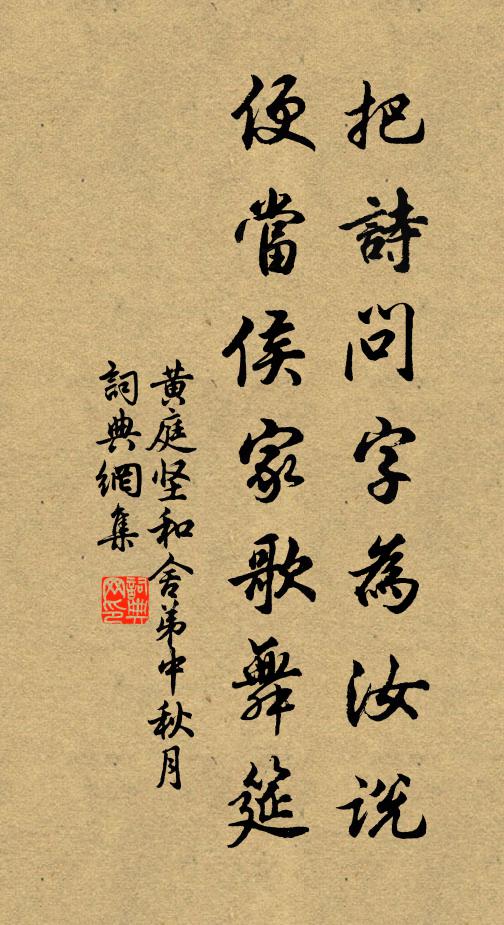 把詩問字為汝説
便當侯家歌舞筵
黃庭坚和舍弟中秋月
詞典網集
詞典网印